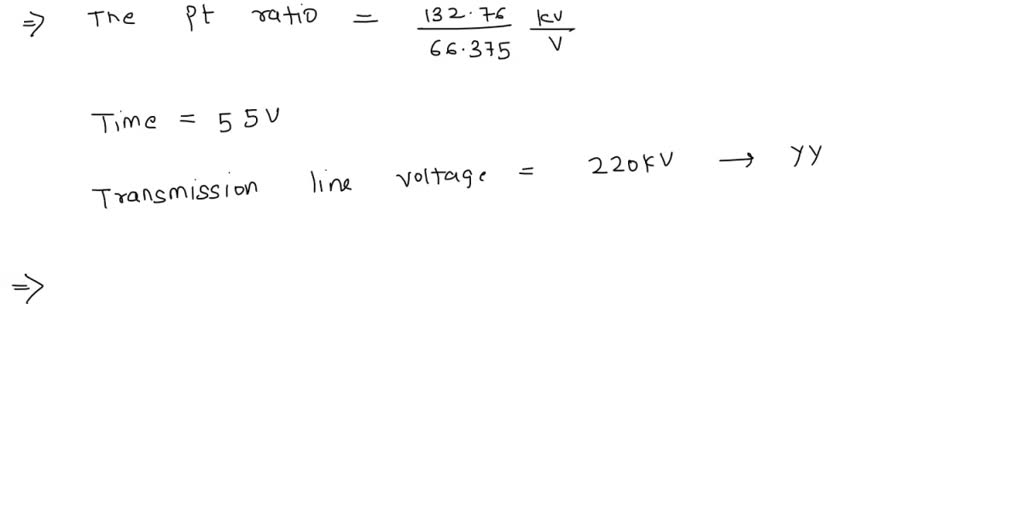 ⇒ The Pt ratio = 132.76 / 66.375 kV / V
Time = 55V
Transmission line voltage = 220kV → YY
⇒